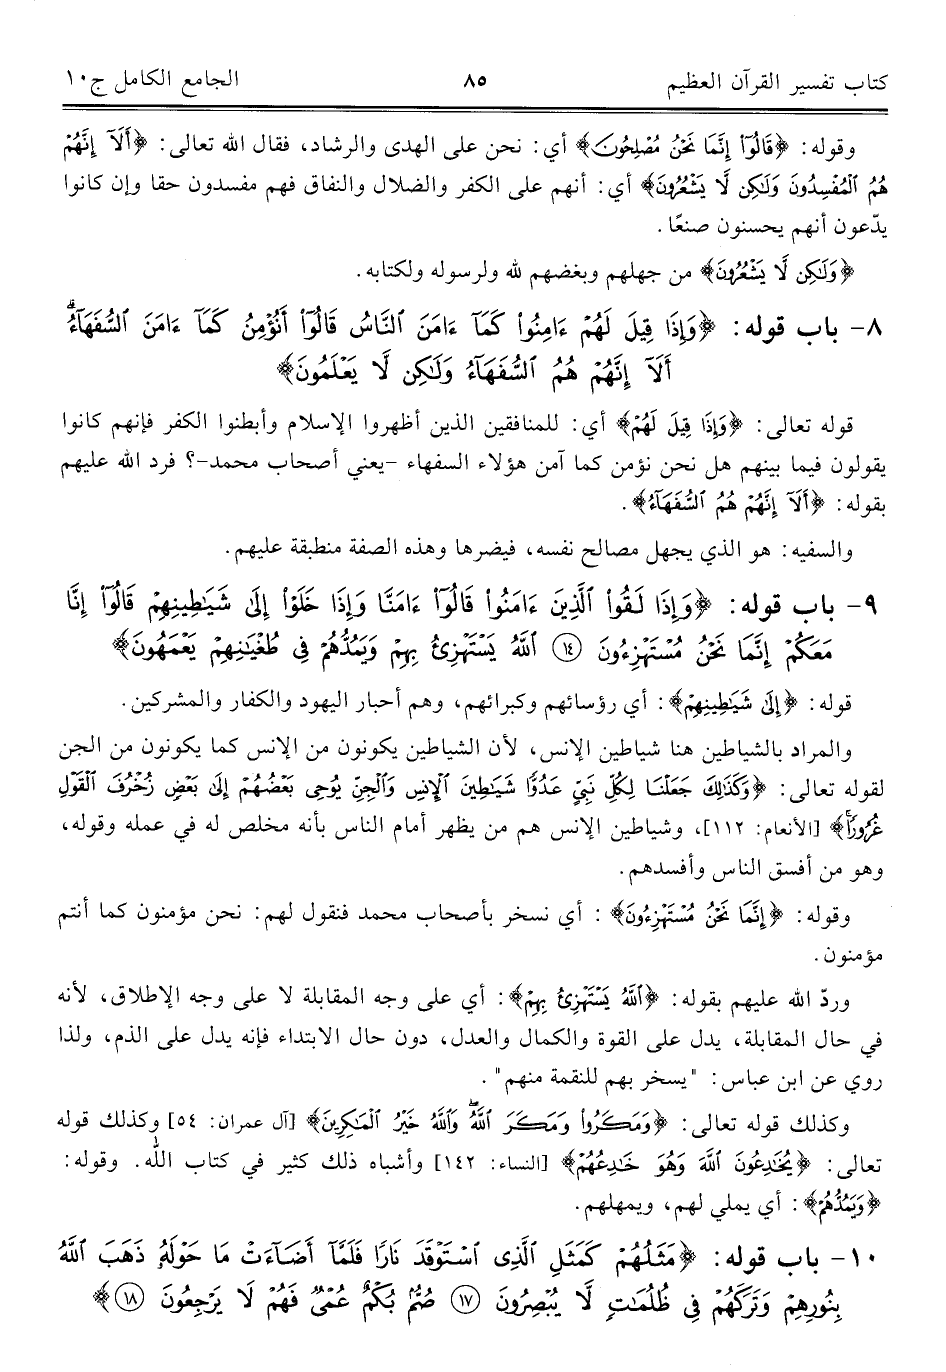 كتاب تفسير القرآن العظيم ٨٥ الجامع الكامل ج١٠
وقوله: ﴿قَالُوٓاْ إِنَّمَا نَحۡنُ مُصۡلِحُونَ﴾ أي: نحن على الهدى والرشاد، فقال الله تعالى: ﴿أَلَآ إِنَّهُمۡ
هُمُ ٱلۡمُفۡسِدُونَ وَلَٰكِن لَّا يَشۡعُرُونَ﴾ أي: أنهم على الكفر والضلال والنفاق فهم مفسدون حقا وإن كانوا
يدّعون أنهم يحسنون صنعًا.
﴿وَلَٰكِن لَّا يَشۡعُرُونَ﴾ من جهلهم وبغضهم لله ولرسوله ولكتابه.
٨- باب قوله: ﴿وَإِذَا قِيلَ لَهُمۡ ءَامِنُواْ كَمَآ ءَامَنَ ٱلنَّاسُ قَالُوٓاْ أَنُؤۡمِنُ كَمَآ ءَامَنَ ٱلسُّفَهَآءُۗ
أَلَآ إِنَّهُمۡ هُمُ ٱلسُّفَهَآءُ وَلَٰكِن لَّا يَعۡلَمُونَ﴾
قوله تعالى: ﴿وَإِذَا قِيلَ لَهُمۡ﴾ أي: للمنافقين الذين أظهروا الإسلام وأبطنوا الكفر فإنهم كانوا
يقولون فيما بينهم هل نحن نؤمن كما آمن هؤلاء السفهاء -يعني أصحاب محمد-؟ فرد الله عليهم
بقوله: ﴿أَلَآ إِنَّهُمۡ هُمُ ٱلسُّفَهَآءُ﴾.
والسفيه: هو الذي يجهل مصالح نفسه، فيضرها وهذه الصفة منطبقة عليهم.
٩- باب قوله: ﴿وَإِذَا لَقُواْ ٱلَّذِينَ ءَامَنُواْ قَالُوٓاْ ءَامَنَّا وَإِذَا خَلَوۡاْ إِلَىٰ شَيَٰطِينِهِمۡ قَالُوٓاْ إِنَّا
مَعَكُمۡ إِنَّمَا نَحۡنُ مُسۡتَهۡزِءُونَ ١٤ ٱللَّهُ يَسۡتَهۡزِئُ بِهِمۡ وَيَمُدُّهُمۡ فِي طُغۡيَٰنِهِمۡ يَعۡمَهُونَ﴾
قوله: ﴿إِلَىٰ شَيَٰطِينِهِمۡ﴾: أي رؤسائهم وكبرائهم، وهم أحبار اليهود والكفار والمشركين.
والمراد بالشياطين هنا شياطين الإنس، لأن الشياطين يكونون من الإنس كما يكونون من الجن
لقوله تعالى: ﴿وَكَذَٰلِكَ جَعَلۡنَا لِكُلِّ نَبِيٍّ عَدُوّٗا شَيَٰطِينَ ٱلۡإِنسِ وَٱلۡجِنِّ يُوحِي بَعۡضُهُمۡ إِلَىٰ بَعۡضٖ زُخۡرُفَ ٱلۡقَوۡلِ
غُرُورٗاۚ﴾ [الأنعام: ١١٢]، وشياطين الإنس هم من يظهر أمام الناس بأنه مخلص له في عمله وقوله،
وهو من أفسق الناس وأفسدهم.
وقوله: ﴿إِنَّمَا نَحۡنُ مُسۡتَهۡزِءُونَ﴾ : أي نسخر بأصحاب محمد فنقول لهم: نحن مؤمنون كما أنتم
مؤمنون.
وردّ الله عليهم بقوله: ﴿ٱللَّهُ يَسۡتَهۡزِئُ بِهِمۡ﴾: أي على وجه المقابلة لا على وجه الإطلاق، لأنه
في حال المقابلة، يدل على القوة والكمال والعدل، دون حال الابتداء فإنه يدل على الذم، ولذا
روي عن ابن عباس: "يسخر بهم للنقمة منهم".
وكذلك قوله تعالى: ﴿وَمَكَرُواْ وَمَكَرَ ٱللَّهُۖ وَٱللَّهُ خَيۡرُ ٱلۡمَٰكِرِينَ﴾ [آل عمران: ٥٤] وكذلك قوله
تعالى: ﴿يُخَٰدِعُونَ ٱللَّهَ وَهُوَ خَٰدِعُهُمۡ﴾ [النساء: ١٤٢] وأشباه ذلك كثير في كتاب الله. وقوله:
﴿وَيَمُدُّهُمۡ﴾: أي يملي لهم، ويمهلهم.
١٠- باب قوله: ﴿مَثَلُهُمۡ كَمَثَلِ ٱلَّذِي ٱسۡتَوۡقَدَ نَارٗا فَلَمَّآ أَضَآءَتۡ مَا حَوۡلَهُۥ ذَهَبَ ٱللَّهُ
بِنُورِهِمۡ وَتَرَكَهُمۡ فِي ظُلُمَٰتٖ لَّا يُبۡصِرُونَ ١٧ صُمُّۢ بُكۡمٌ عُمۡيٞ فَهُمۡ لَا يَرۡجِعُونَ ١٨﴾